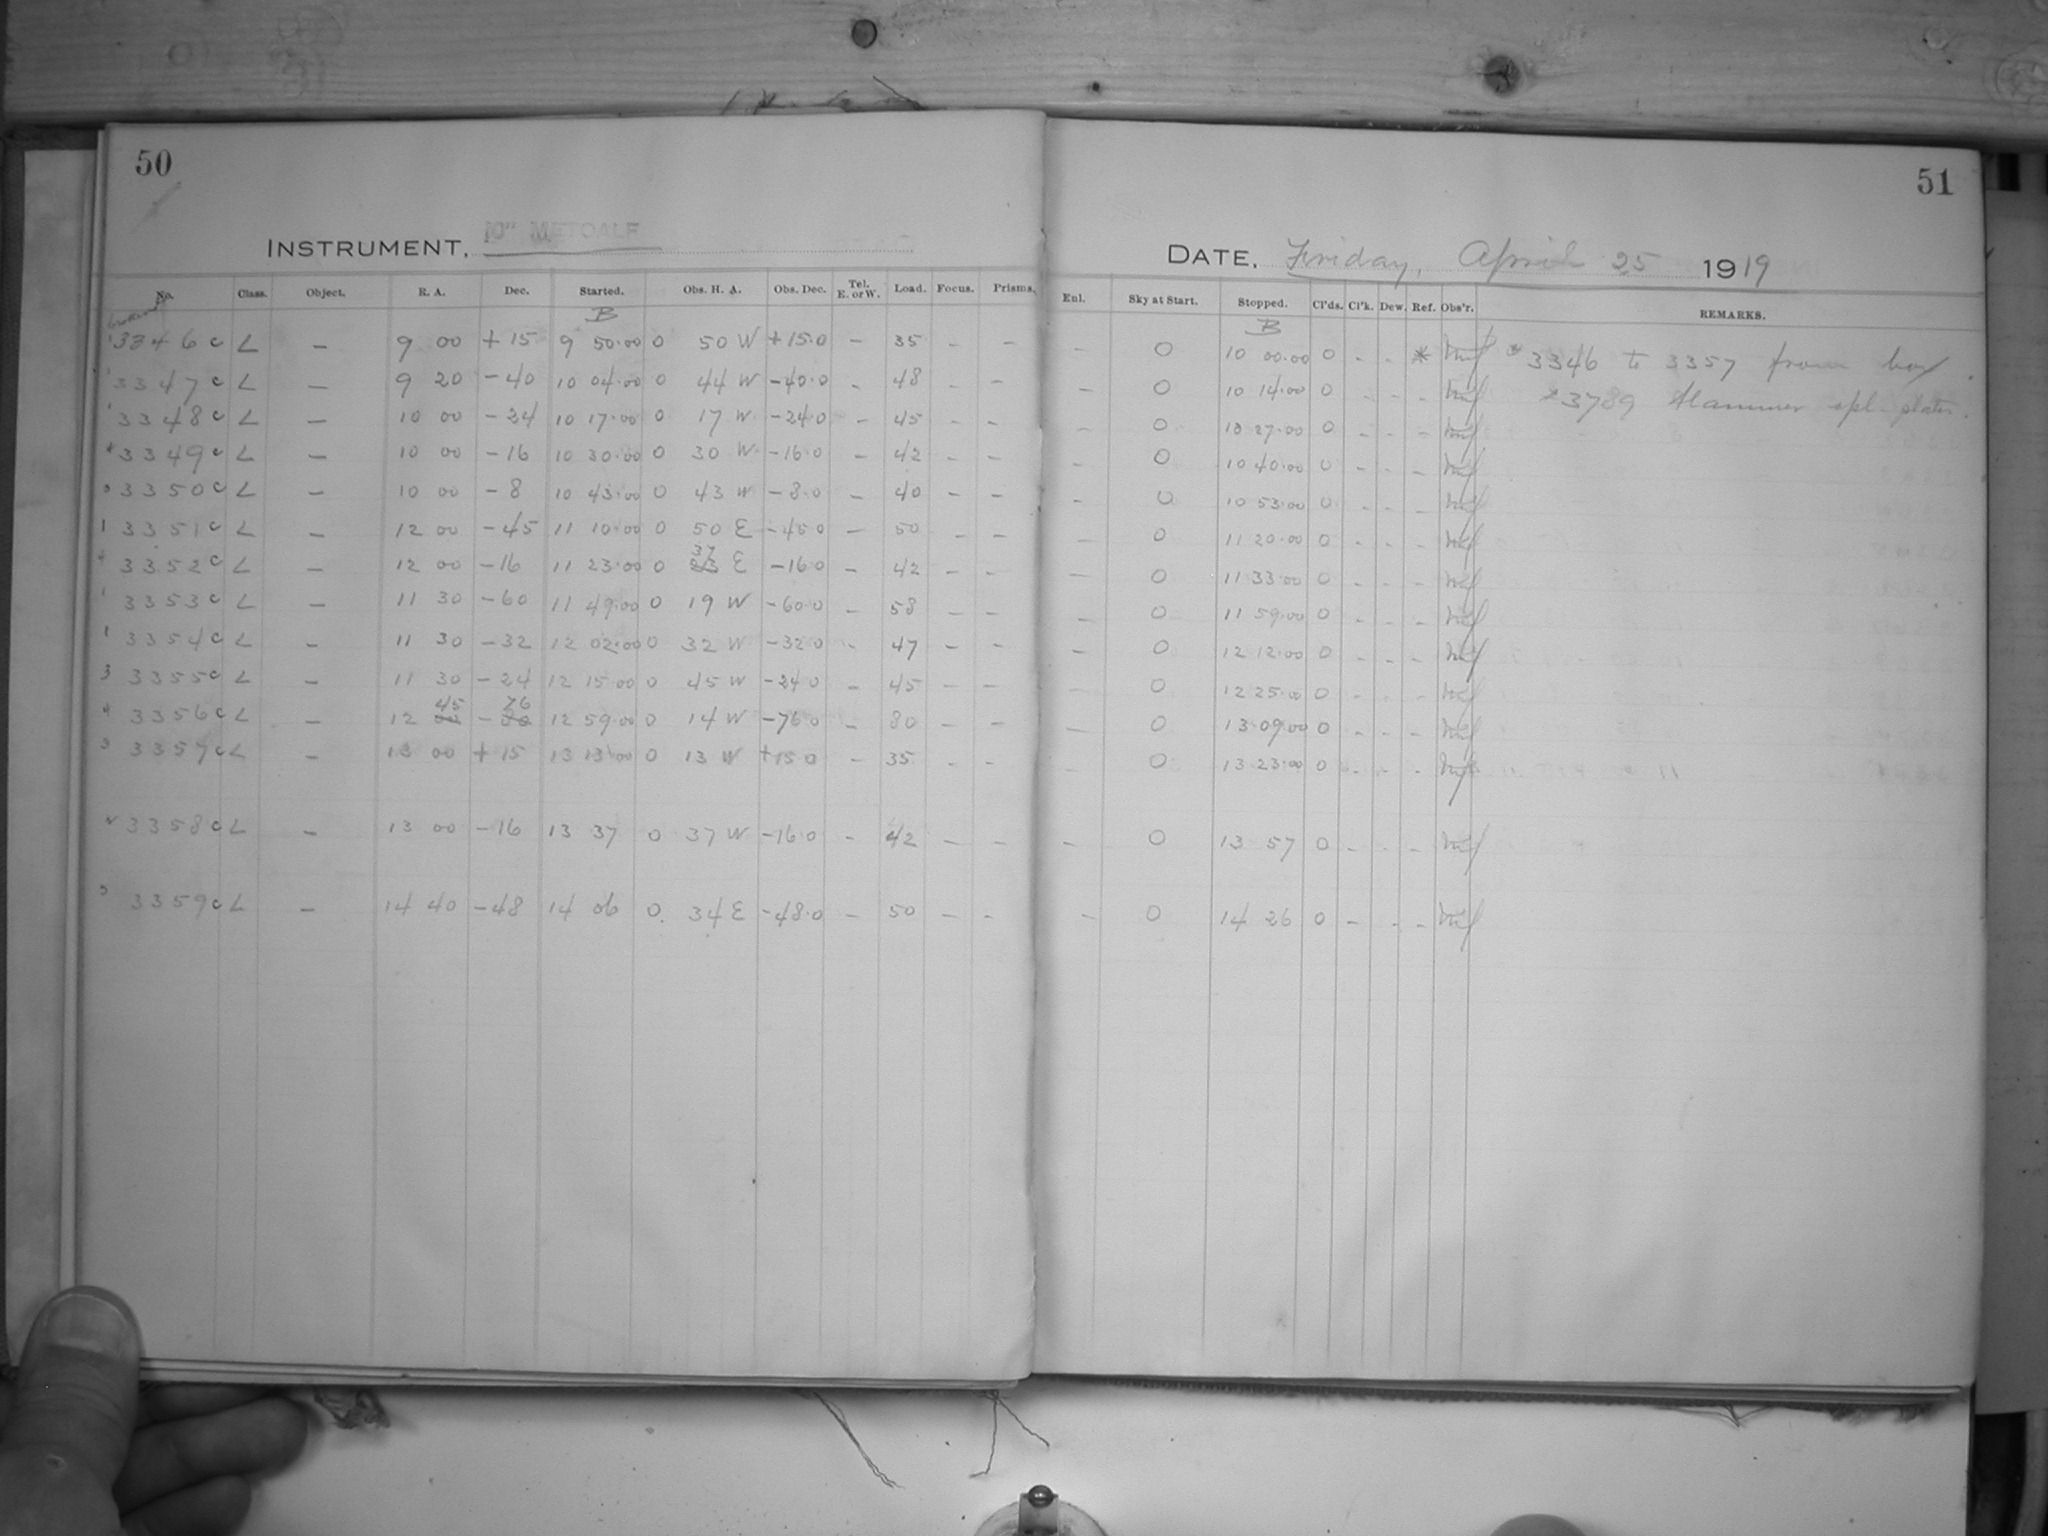 50
51
INSTRUMENT, 10" METCALF
DATE, Friday, April 25 1919
No. Class. Object. R. A. Dec. Started. Obs. H. A. Obs. Dec. Tel. E. or W. Load. Focus. Prisms. Enl. Sky at Start. Stopped. Cl'ds. Cl'k. Dew. Ref. Obs'r. REMARKS.
B B
3346 c L – 9 00 +15 9 50.00 0 50 W +15.0 – 35 – – – 0 10 00.00 0 - - * * 3346 to 3357 from box
3347 c L – 9 20 -40 10 04.00 0 44 W -40.0 - 48 – – – 0 10 14.00 0 - - - *3789 Hammer spl. plates.
3348 c L – 10 00 -24 10 17.00 0 17 W -24.0 - 45 – – – 0 10 27.00 0 - - -
3349 c L – 10 00 -16 10 30.00 0 30 W -16.0 – 42 – – – 0 10 40.00 0 - - -
3350 c L – 10 00 -8 10 43.00 0 43 W -8.0 – 40 – – – 0 10 53.00 0 - - -
3351 c L – 12 00 -45 11 10.00 0 50 E -45.0 – 50 – – – 0 11 20.00 0 - - -
37
3352 c L – 12 00 -16 11 23.00 0 23 E -16.0 – 42 – – – 0 11 33.00 0 - - -
3353 c L – 11 30 -60 11 49.00 0 19 W -60.0 – 58 – – – 0 11 59.00 0 - - -
3354 c L – 11 30 -32 12 02.00 0 32 W -32.0 - 47 – – – 0 12 12.00 0 - - -
3355 c L – 11 30 -24 12 15.00 0 45 W -24.0 – 45 – – – 0 12 25.00 0 - - -
45 76
3356 c L – 12 00 - 12 59.00 0 14 W -76.0 – 80 – – – 0 13 09.00 0 - - -
3357 c L – 13 00 +15 13 13.00 0 13 W +15.0 – 35 – – – 0 13 23.00 0 - - -
3358 c L – 13 00 -16 13 37 0 37 W -16.0 – 42 – – – 0 13 57 0 - - -
3359 c L – 14 40 -48 14 06 0. 34 E -48.0 – 50 – – – 0 14 26 0 – - -